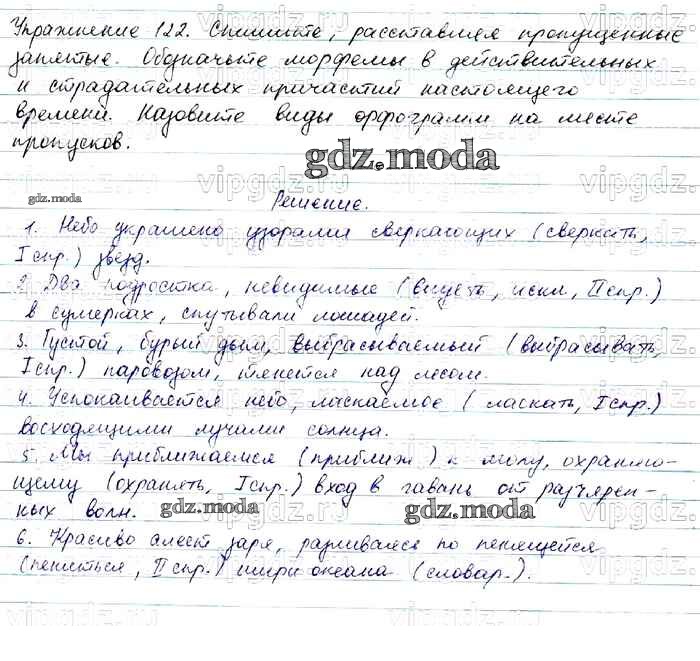 Упражнение 122. Спишите, расставляя пропущенные
запятые. Обозначьте морфемы в действительных
и страдательных причастий настоящего
времени. Назовите виды орфограмм на месте
пропусков.
gdz.moda
gdz.moda
Решение.
1. Небо украшено узорами сверкающих (сверкать,
I спр.) звезд.
2. Два подростка, невидимые (видеть, искл, II спр.)
в сумерках, спутывали лошадей.
3. Густой, бурый дым, выбрасываемый (выбрасывать,
I спр.) паровозом, тянется над лесом.
4. Успокаивается небо, ласкаемое (ласкать, I спр.)
восходящими лучами солнца.
5. Мы приближаемся (приближ ) к молу, охраняю-
щему (охранять, I спр.) вход в гавань от разъярен-
ных волн.
gdz.moda
gdz.moda
6. Красиво алеет заря, разливаясь по пенящейся
(пениться, II спр.) шири океана (словар.).